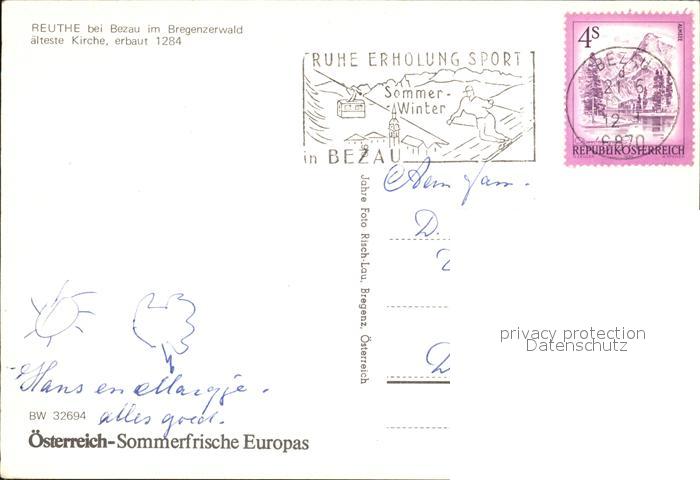 REUTHE bei Bezau im Bregenzerwald
älteste Kirche, erbaut 1284
RUHE ERHOLUNG SPORT
Sommer-
-Winter
in BEZAU
4s
ALMSEE
BEZAU
6870
REPUBLIK ÖSTERREICH
Aan fam.
D.
D
Jahre Foto Risch-Lau, Bregenz, Österreich
privacy protection
Datenschutz
Hans en Margje.
alles goed.
BW 32694
Österreich-Sommerfrische Europas